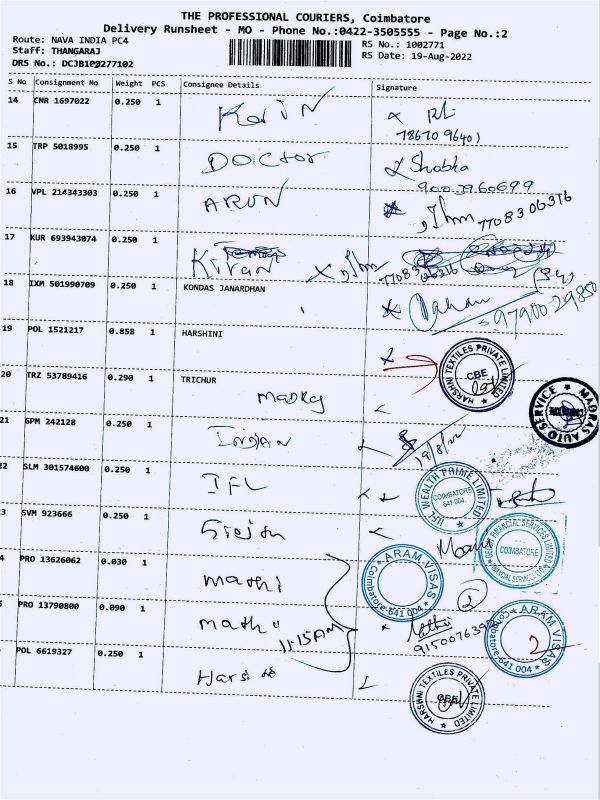 THE PROFESSIONAL COURIERS, Coimbatore
Delivery Runsheet - MO - Phone No.:0422-3505555 - Page No.:2
Route: NAVA INDIA PC4
RS No.: 1002771
Staff: THANGARAJ
RS Date: 19-Aug-2022
DRS No.: DCJB1
S No Consignment No Weight PCS Consignee Details Signature
14 CNR 1697022 0.250 1
15 TRP 5018995 0.250 1 DOCTOR Shobha
16 VPL 214343303 0.250 1 ARUN
7708306316
17 KUR 693943074 0.250 1 Kiran
18 IXM 501990709 0.250 1 KONDAS JANARDHAN
9790029850
19 POL 1521217 0.858 1 HARSHINI
HARSHNI TEXTILES PRIVATE LIMITED CBE
20 TRZ 53789416 0.290 1 TRICHUR
MADRAS AUTO SERVICE
21 GPM 242128 0.250 1 INDIAN
2 SLM 301574600 0.250 1 IFL
IIFL WEALTH PRIME LIMITED COIMBATORE 641 004
3 SVM 923666 0.250 1
FINANCIAL SERVICES LIMITED COIMBATORE
4 PRO 13626062 0.030 1 mathi
ARAM VISAS Coimbatore-641 004 2
5 PRO 13790800 0.090 1 11:15AM
9150076392
ARAM VISAS Coimbatore-641 004 2
POL 6619327 0.250 1
HARSHNI TEXTILES PRIVATE LIMITED CBE